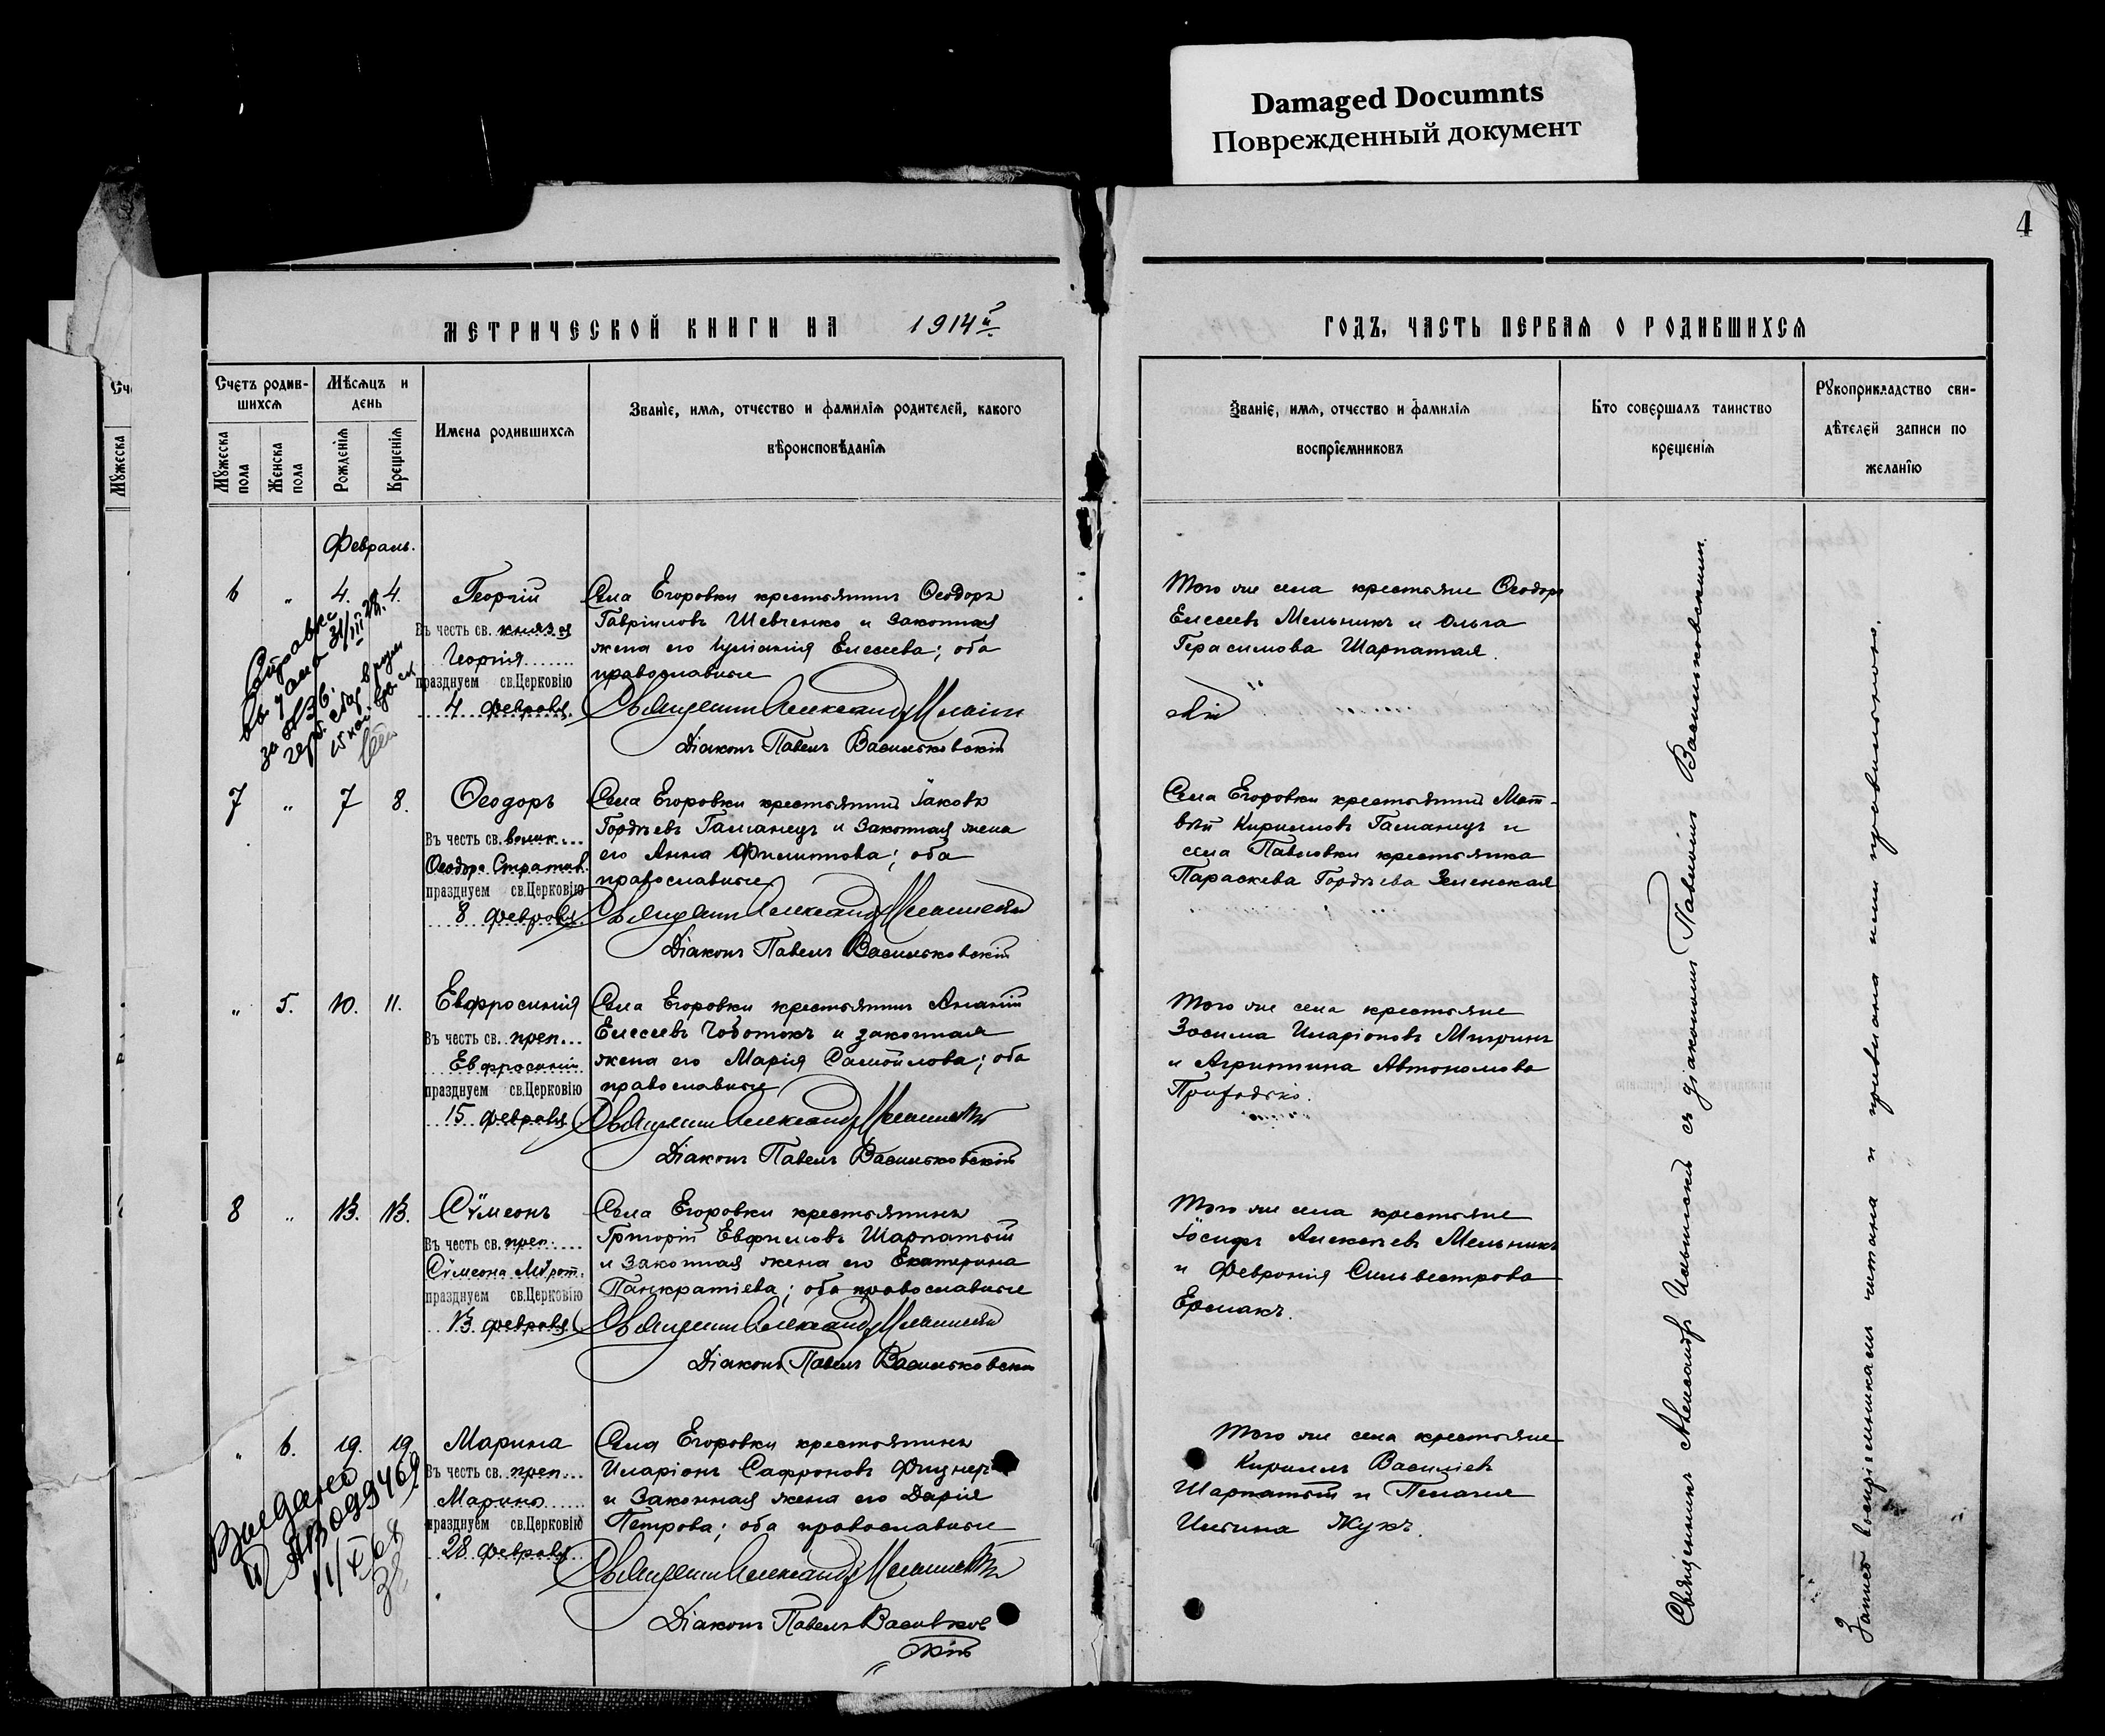 Damaged Documnts
Поврежденный документ
4
МЕТРИЧЕСКОЙ КНИГИ НА 1914й
ГОДЪ, ЧАСТЬ ПЕРВАЯ О РОДИВШИХСЯ
Счетъ родив-
шихся
Мѣсяцъ и
день
Мужеска
пола
Женска
пола
Рожденія
Крещенія
Имена родившихся
Званіе, имя, отчество и фамилія родителей, какого
вѣроисповѣданія
Званіе, имя, отчество и фамилія
воспріемниковъ
Кто совершалъ таинство
крещенія
Рукоприкладство сви-
дѣтелей записи по
желанію
Сче
Мужеска
Февраль.
6 " 4. 4.
Георгій
Въ честь св. князя
Георгія
празднуем св.Церковію
4 февраля.
Села Егоровки крестьянинъ Ѳеодоръ
Гавріиловъ Шевченко и законная
жена его Іуліанія Елесеева; оба
православные
Священникъ Александръ
Діаконъ Павелъ Васильковскій
Того же села крестьяне Ѳеодоръ
Елесеевъ Мельникъ и Ольга
Герасимова Шарпатая.
7 " 7 8.
Ѳеодоръ
Въ честь св. велик.
Ѳеодора Стратил.
празднуем св.Церковію
8 февраля.
Села Егоровки крестьянинъ Іаковъ
Гордѣевъ Гаманецъ и законная жена
его Анна Филиппова; оба
православные
Священникъ Александръ
Діаконъ Павелъ Васильковскій
Села Егоровки крестьянинъ Мат-
вѣй Кирилловъ Гаманецъ и
села Павловки крестьянка
Параскева Гордѣева Зеленская
" 5. 10. 11.
Евфросинія
Въ честь св. преп.
Евфросиніи
празднуем св.Церковію
15 февраля
Села Егоровки крестьянинъ Ананій
Елесеевъ Чоботокъ и законная
жена его Марія Самойлова; оба
православные
Священникъ Александръ
Діаконъ Павелъ Васильковскій
Того же села крестьяне
Зосима Иларіоновъ
и Агриппина Автономова
8 " 13. 13.
Сѵмеонъ
Въ честь св. преп.
Сѵмеона Мѵрот.
празднуем св.Церковію
13 февраля
Села Егоровки крестьянинъ
Григорій Евфимовъ Шарпатый
и законная жена его Екатерина
Панкратіева; оба православные
Священникъ Александръ
Діаконъ Павелъ Васильковскій
Того же села крестьяне
Іосифъ Алексѣевъ Мельникъ
и Февронія Сильвестрова
Ермакъ.
" 6. 19. 19.
Марина
Въ честь св. преп.
Марины
празднуем св.Церковію
28 февраля
Села Егоровки крестьянинъ
Иларіонъ Сафроновъ
и законная жена его Дарія
Петрова; оба православные
Священникъ Александръ
Діаконъ Павелъ Васильков
скій
Того же села крестьяне
Кириллъ Василіевъ
Шарпатый и Пелагія
Ильина Жукъ.
Священникъ Александръ съ діакономъ Павломъ Васильковскимъ.
Запись воспріемникамъ читана и признана ими правильною.
Справка
Выдано